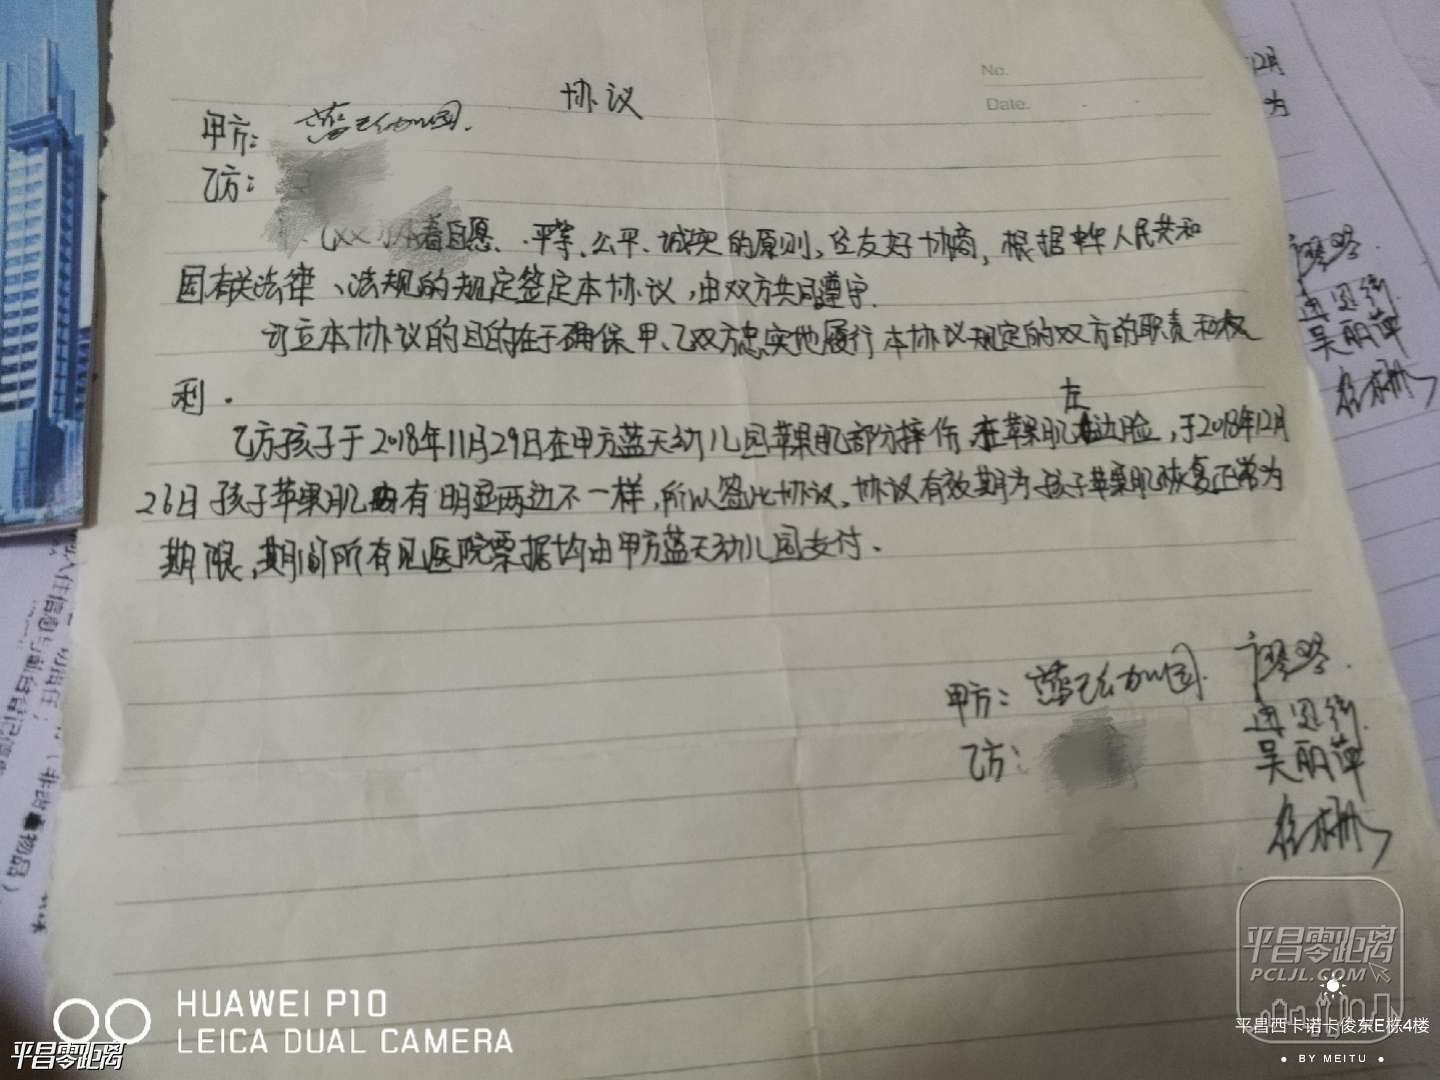 No.
Date.
协议
甲方：蓝天幼儿园.
乙方：
乙双方本着自愿、平等、公平、诚实的原则,经友好协商,根据中华人民共和
国有关法律、法规的规定签定本协议,由双方共同遵守.
订立本协议的目的在于确保甲、乙双方忠实地履行本协议规定的双方的职责和权
利.
左
乙方孩子于2018年11月29日在甲方蓝天幼儿园苹果肌部分摔伤,在苹果肌边脸,于2018年12月
26日孩子苹果肌有明显两边不一样,所以签此协议,协议有效期为孩子苹果肌恢复正常为
期限,期间所有见医院票据均由甲方蓝天幼儿园支付.
甲方：蓝天幼儿园.
乙方：
吴丽萍
12月
为
吴丽萍
HUAWEI P10
LEICA DUAL CAMERA
平昌零距离
平昌零距离
PCLJL.COM
平昌西卡诺卡俊东E栋4楼
BY MEITU